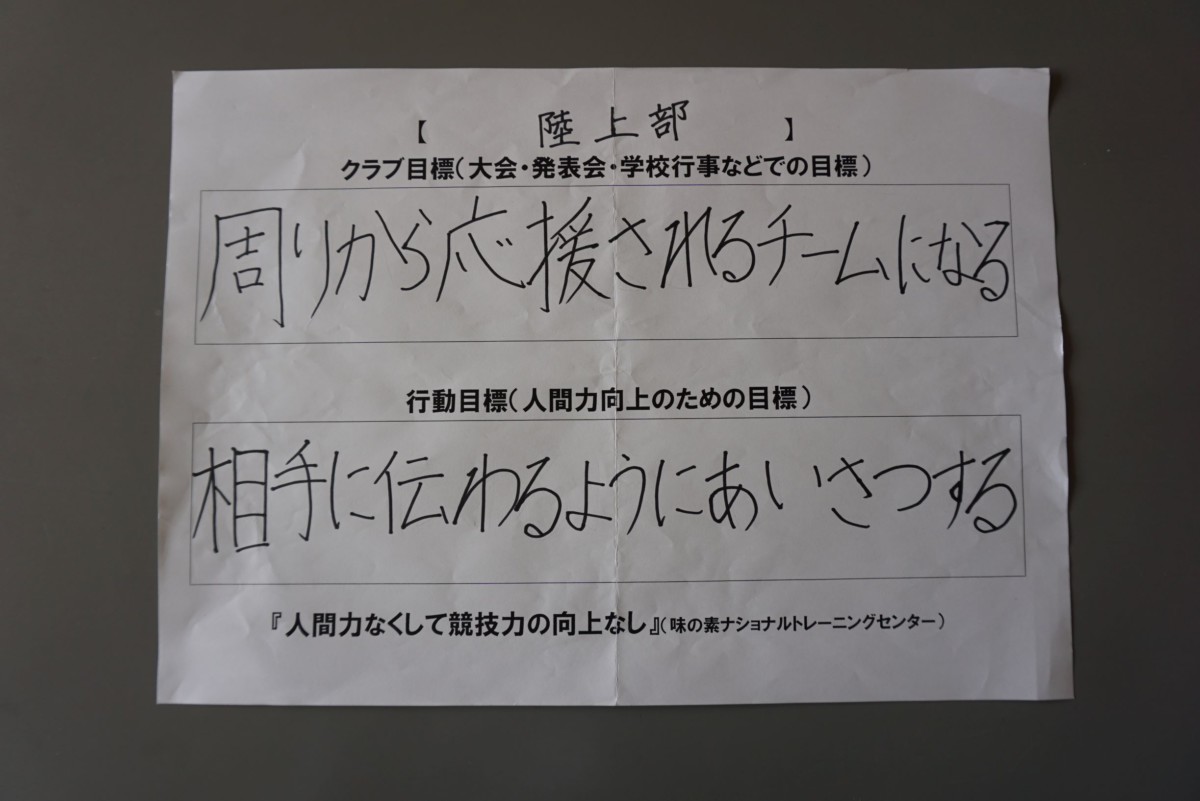 【 陸上部 】
クラブ目標(大会・発表会・学校行事などでの目標)
周りから応援されるチームになる
行動目標(人間力向上のための目標)
相手に伝わるようにあいさつする
『人間力なくして競技力の向上なし』(味の素ナショナルトレーニングセンター)